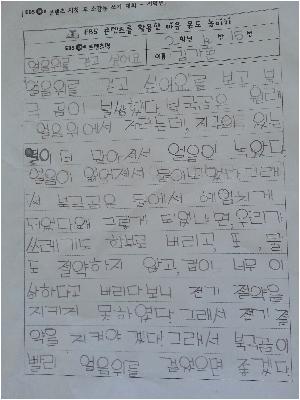 EBS 콘텐츠 시청 후 소감문 쓰기 대회
EBS 콘텐츠를 활용한 마음 온도 높이기
EBS 콘텐츠명
학년 반 15번
얼음위를 걷고 싶어요
얼음위를 걷고 싶어요를 보고 북
극곰이 불쌍했다. 북극곰은 원래
얼음위에서 사는데, 지구에 있는
더 많아져서 얼음이 녹았다
얼음이 없어져서
서 북극곰은 물에서 헤엄치게
되었다. 왜 그렇게 되었냐면, 우리가
쓰레기도 함부로 버리고, 또, 물
도 절약하지 않고, 너무 이
상하다고 버리다보니 전기 절약을
지키지 못하였다. 그래서 전기 절
약을 지켜야 겠다! 그래서 북극곰이
빨리 얼음위를 걸었으면 좋겠다!